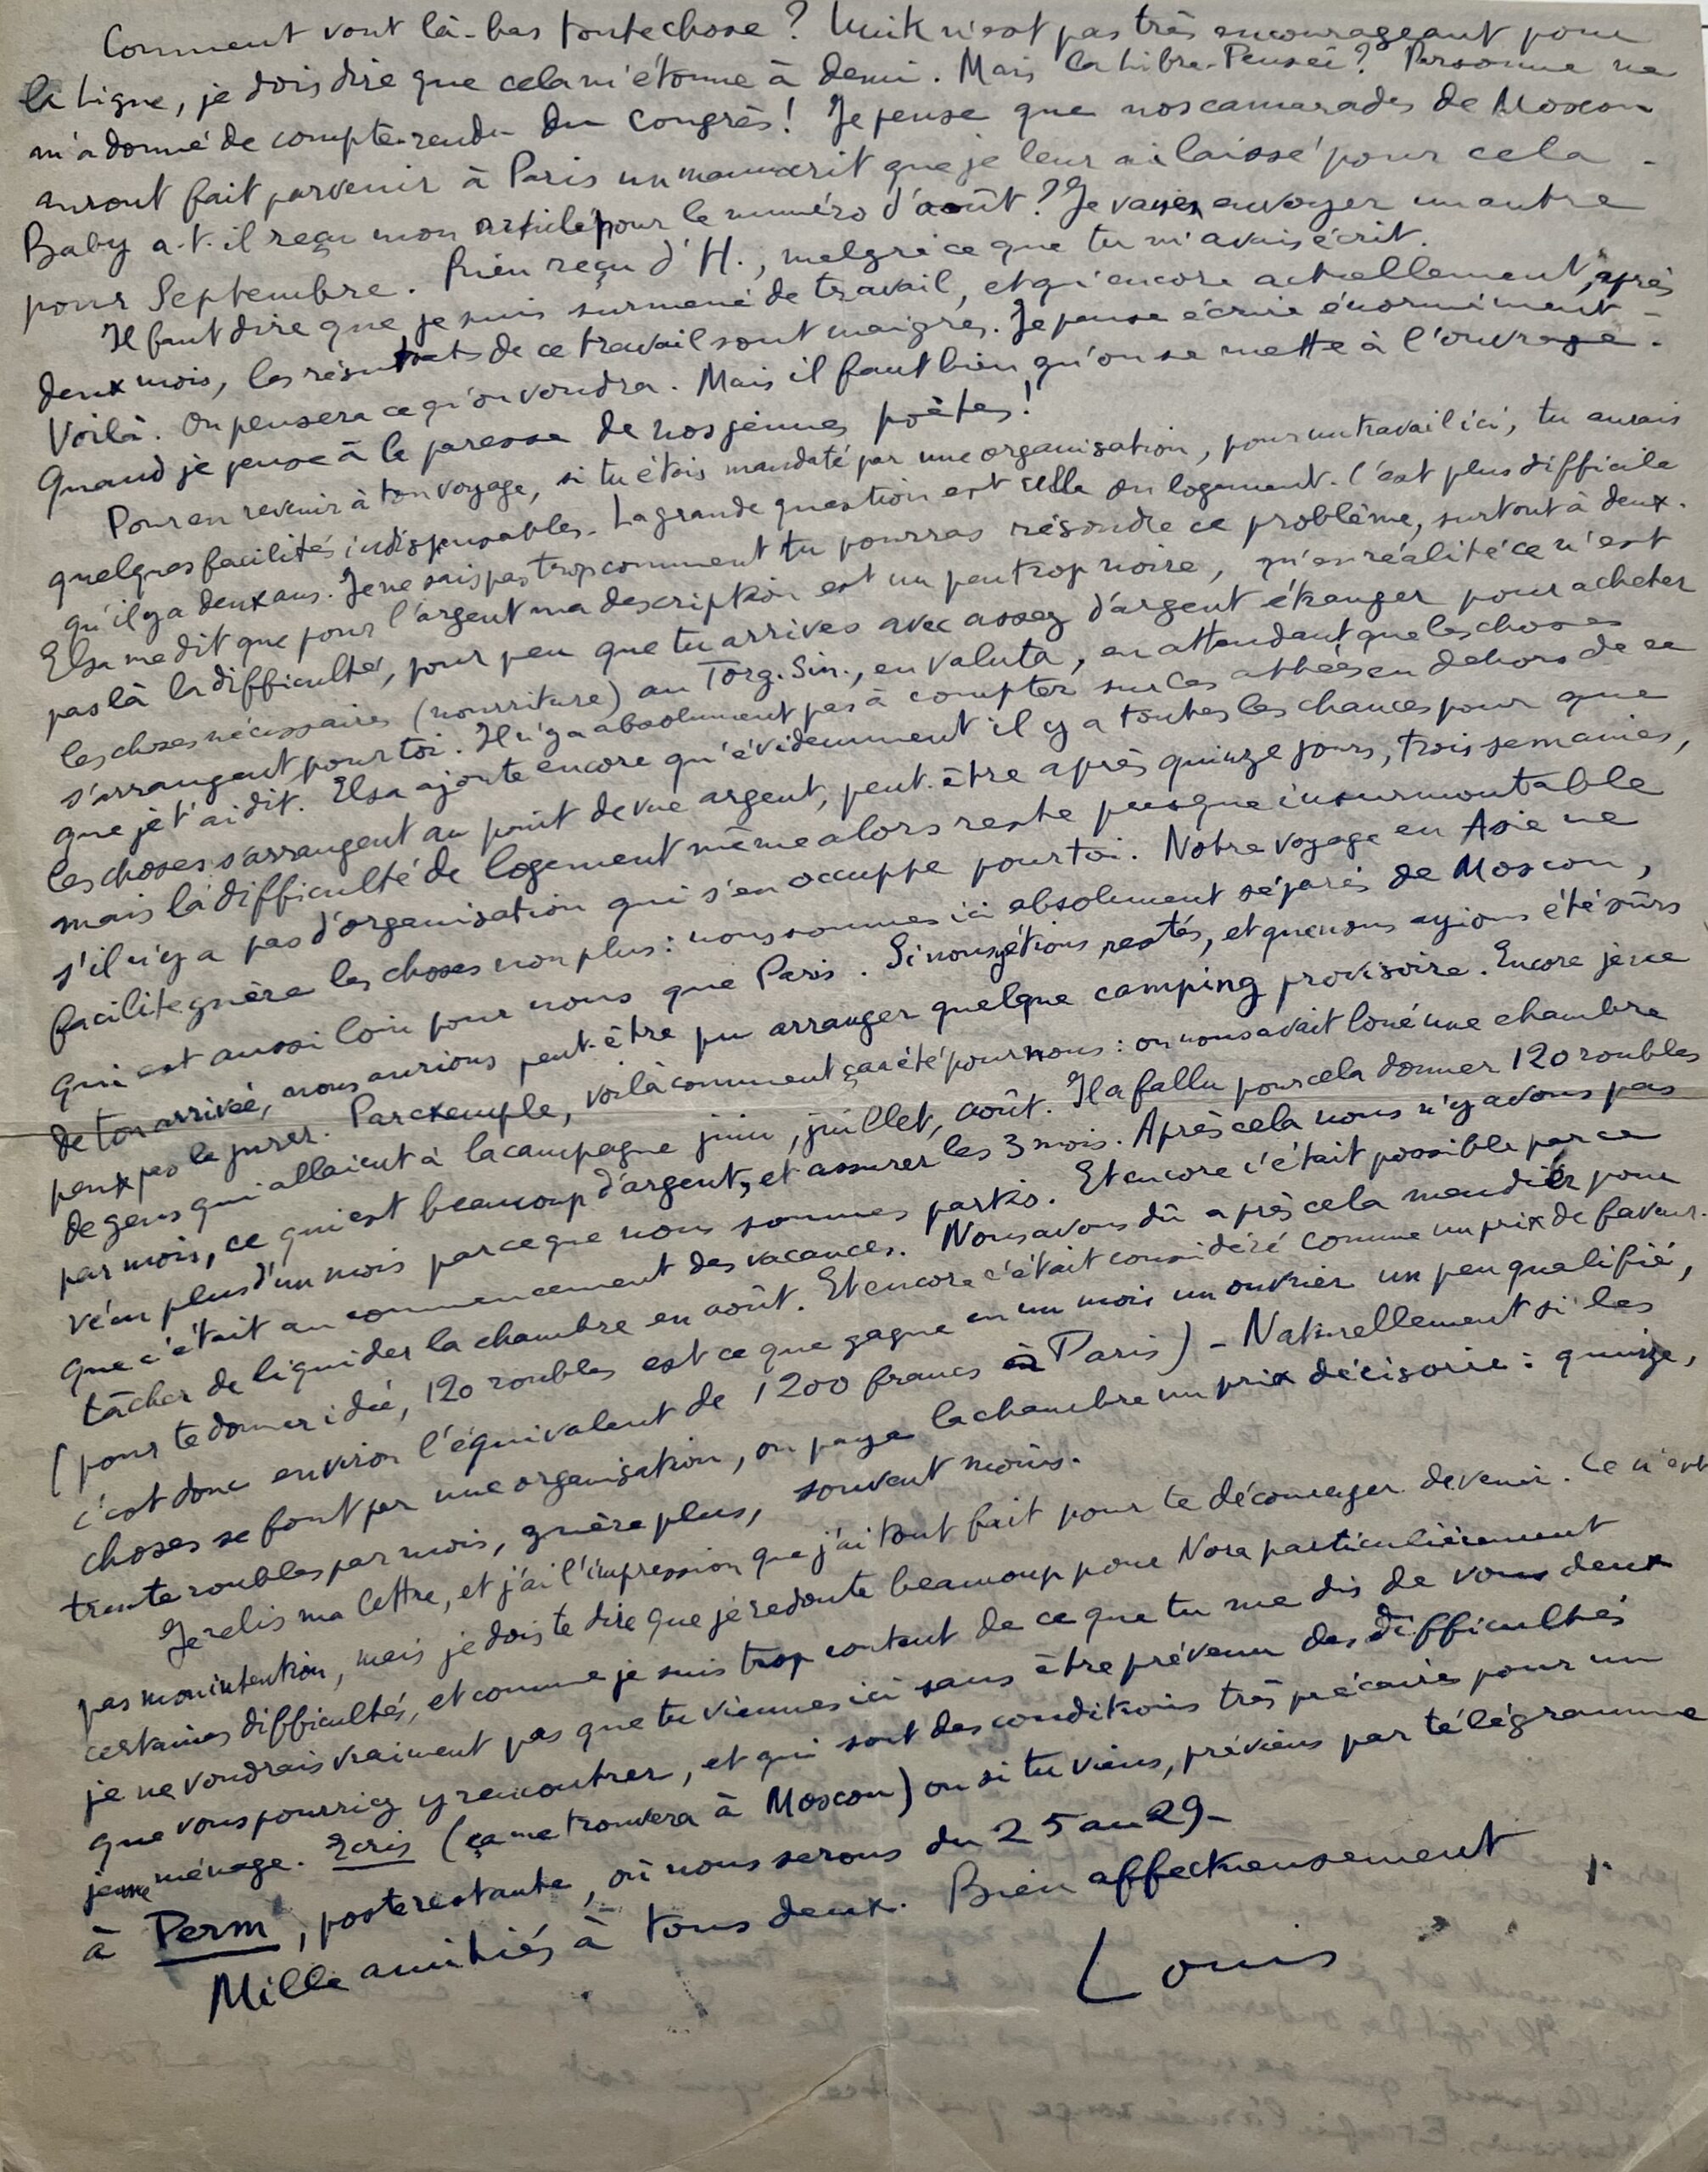 Comment vont là-bas toute chose ? Unik n'est pas très encourageant pour
la Ligue, je dois dire que cela m'étonne à demi. Mais la Libre-Pensée ? Personne ne
m'a donné de compte-rendu du Congrès ! Je pense que nos camarades de Moscou
auront fait parvenir à Paris un manuscrit que je leur ai laissé pour cela -
Baby a-t-il reçu mon article pour le numéro d'août ? Je vais en envoyer un autre
pour Septembre. Rien reçu d'H., malgré ce que tu m'avais écrit.
Il faut dire que je suis surmené de travail, et qu'encore actuellement, après
deux mois, les résultats de ce travail sont maigres. Je pense écrire énormément -
Voilà. On pensera ce qu'on voudra. Mais il faut bien qu'on se mette à l'ouvrage.
Quand je pense à la paresse de nos jeunes poètes !
Pour en revenir à ton voyage, si tu étais mandaté par une organisation, pour un travail ici, tu aurais
quelques facilités indispensables. La grande question est celle du logement. C'est plus difficile
qu'il y a deux ans. Je ne sais pas trop comment tu pourras résoudre ce problème, surtout à deux.
Elsa me dit que pour l'argent ma description est un peu trop noire, qu'en réalité ce n'est
pas là la difficulté, pour peu que tu arrives avec assez d'argent étranger pour acheter
les choses nécessaires (nourriture) au Torg. Sin., en valuta, en attendant que les choses
s'arrangent pour toi. Il n'y a absolument pas à compter sur ces achées en dehors de ce
que je t'ai dit. Elsa ajoute encore qu'évidemment il y a toutes les chances pour que
les choses s'arrangent au point de vue argent, peut-être après quinze jours, trois semaines,
mais la difficulté de logement même alors reste presque insurmontable
s'il n'y a pas d'organisation qui s'en occuppe pour toi. Notre voyage en Asie ne
facilite guère les choses non plus : nous sommes ici absolument séparés de Moscou,
qui est aussi loin pour nous que Paris. Si nous y étions restés, et que nous ayions été sûrs
de ton arrivée, nous aurions peut-être pu arranger quelque camping provisoire. Encore je ne
peux pas le jurer. Par exemple, voilà comment ça a été pour nous : on nous avait loué une chambre
de gens qui allaient à la campagne juin, juillet, août. Il a fallu pour cela donner 120 roubles
par mois, ce qui est beaucoup d'argent, et assurer les 3 mois. Après cela nous n'y avons pas
vécu plus d'un mois parce que nous sommes partis. Et encore c'était possible parce
que c'était au commencement des vacances. Nous avons dû après cela mendier pour
tâcher de liquider la chambre en août. Et encore c'était considéré comme un prix de faveur.
(pour te donner idée, 120 roubles est ce que gagne en un mois un ouvrier un peu qualifié,
c'est donc environ l'équivalent de 1200 francs à Paris) - Naturellement si les
choses se font par une organisation, on paye la chambre un prix décisoire : quinze,
trente roubles par mois, guère plus, souvent moins.
Je relis ma lettre, et j'ai l'impression que j'ai tout fait pour te décourager de venir. Ce n'est
pas mon intention, mais je dois te dire que je redoute beaucoup pour Nora particulièrement
certaines difficultés, et comme je suis trop content de ce que tu me dis de vous deux
je ne voudrais vraiment pas que tu viennes ici sans être prévenu des difficultés
que vous pourriez y rencontrer, et qui sont des conditions très précaires pour un
jeune ménage. Ecris (ça me trouvera à Moscou) ou si tu viens, préviens par télégramme
à Perm, poste restante, où nous serons du 25 au 29 -
Mille amitiés à tous deux. Bien affectueusement
Louis